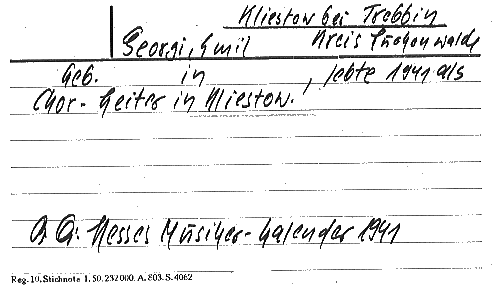 Kliestow bei Trebbin
Georgi, Emil Kreis Luckenwalde
Geb. in , lebte 1941 als
Chor-Leiter in Kliestow.
Q: Hesses Musiker-Kalender 1941
Reg. 10. Stichnote 1. 50. 232000. A. 803. S. 4062